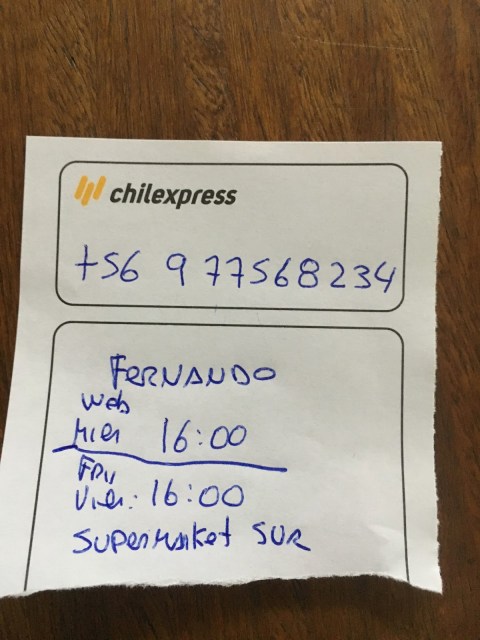 chilexpress
+56 9 77568234
FERNANDO
Web
Mier 16:00
FRI
Vier: 16:00
SUPERMARKET SUR